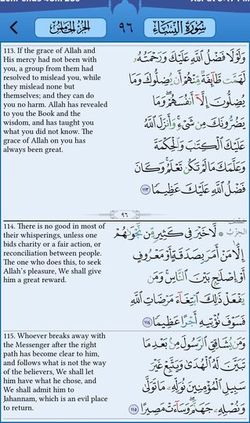 الجزء الخامس ٩٦ سورة النساء
113. If the grace of Allah and
His mercy had not been with
you, a group from them had
resolved to mislead you, while
they mislead none but
themselves; and they can do
you no harm. Allah has revealed
to you the Book and the
wisdom, and has taught you
what you did not know. The
grace of Allah on you has
always been great.
وَلَوْلَا فَضْلُ ٱللَّهِ عَلَيْكَ وَرَحْمَتُهُۥ
لَهَمَّت طَّآئِفَةٌ مِّنْهُمْ أَن يُضِلُّوكَ وَمَا
يُضِلُّونَ إِلَّآ أَنفُسَهُمْ وَمَا
يَضُرُّونَكَ مِن شَىْءٍ وَأَنزَلَ ٱللَّهُ
عَلَيْكَ ٱلْكِتَٰبَ وَٱلْحِكْمَةَ
وَعَلَّمَكَ مَا لَمْ تَكُن تَعْلَمُ وَكَانَ
فَضْلُ ٱللَّهِ عَلَيْكَ عَظِيمًا ١١٣
٩٦
114. There is no good in most of
their whisperings, unless one
bids charity or a fair action, or
reconciliation between people.
The one who does this, to seek
Allah's pleasure, We shall give
him a great reward.
الحزب لَّا خَيْرَ فِى كَثِيرٍ مِّن نَّجْوَىٰهُمْ
إِلَّا مَنْ أَمَرَ بِصَدَقَةٍ أَوْ مَعْرُوفٍ
أَوْ إِصْلَٰحٍۭ بَيْنَ ٱلنَّاسِ وَمَن
يَفْعَلْ ذَٰلِكَ ٱبْتِغَآءَ مَرْضَاتِ ٱللَّهِ
فَسَوْفَ نُؤْتِيهِ أَجْرًا عَظِيمًا ١١٤
115. Whoever breaks away with
the Messenger after the right
path has become clear to him,
and follows what is not the way
of the believers, We shall let
him have what he chose, and
We shall admit him to
Jahannam, which is an evil place
to return.
وَمَن يُشَاقِقِ ٱلرَّسُولَ مِنۢ بَعْدِ مَا
تَبَيَّنَ لَهُ ٱلْهُدَىٰ وَيَتَّبِعْ غَيْرَ
سَبِيلِ ٱلْمُؤْمِنِينَ نُوَلِّهِۦ مَا تَوَلَّىٰ
وَنُصْلِهِۦ جَهَنَّمَ وَسَآءَتْ مَصِيرًا ١١٥